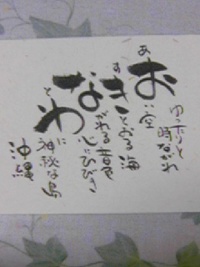 あおい空
ゆったりと
時ながれ
すきとおる海
ながれる音色
心にひびく
とわに
神秘な島
沖縄